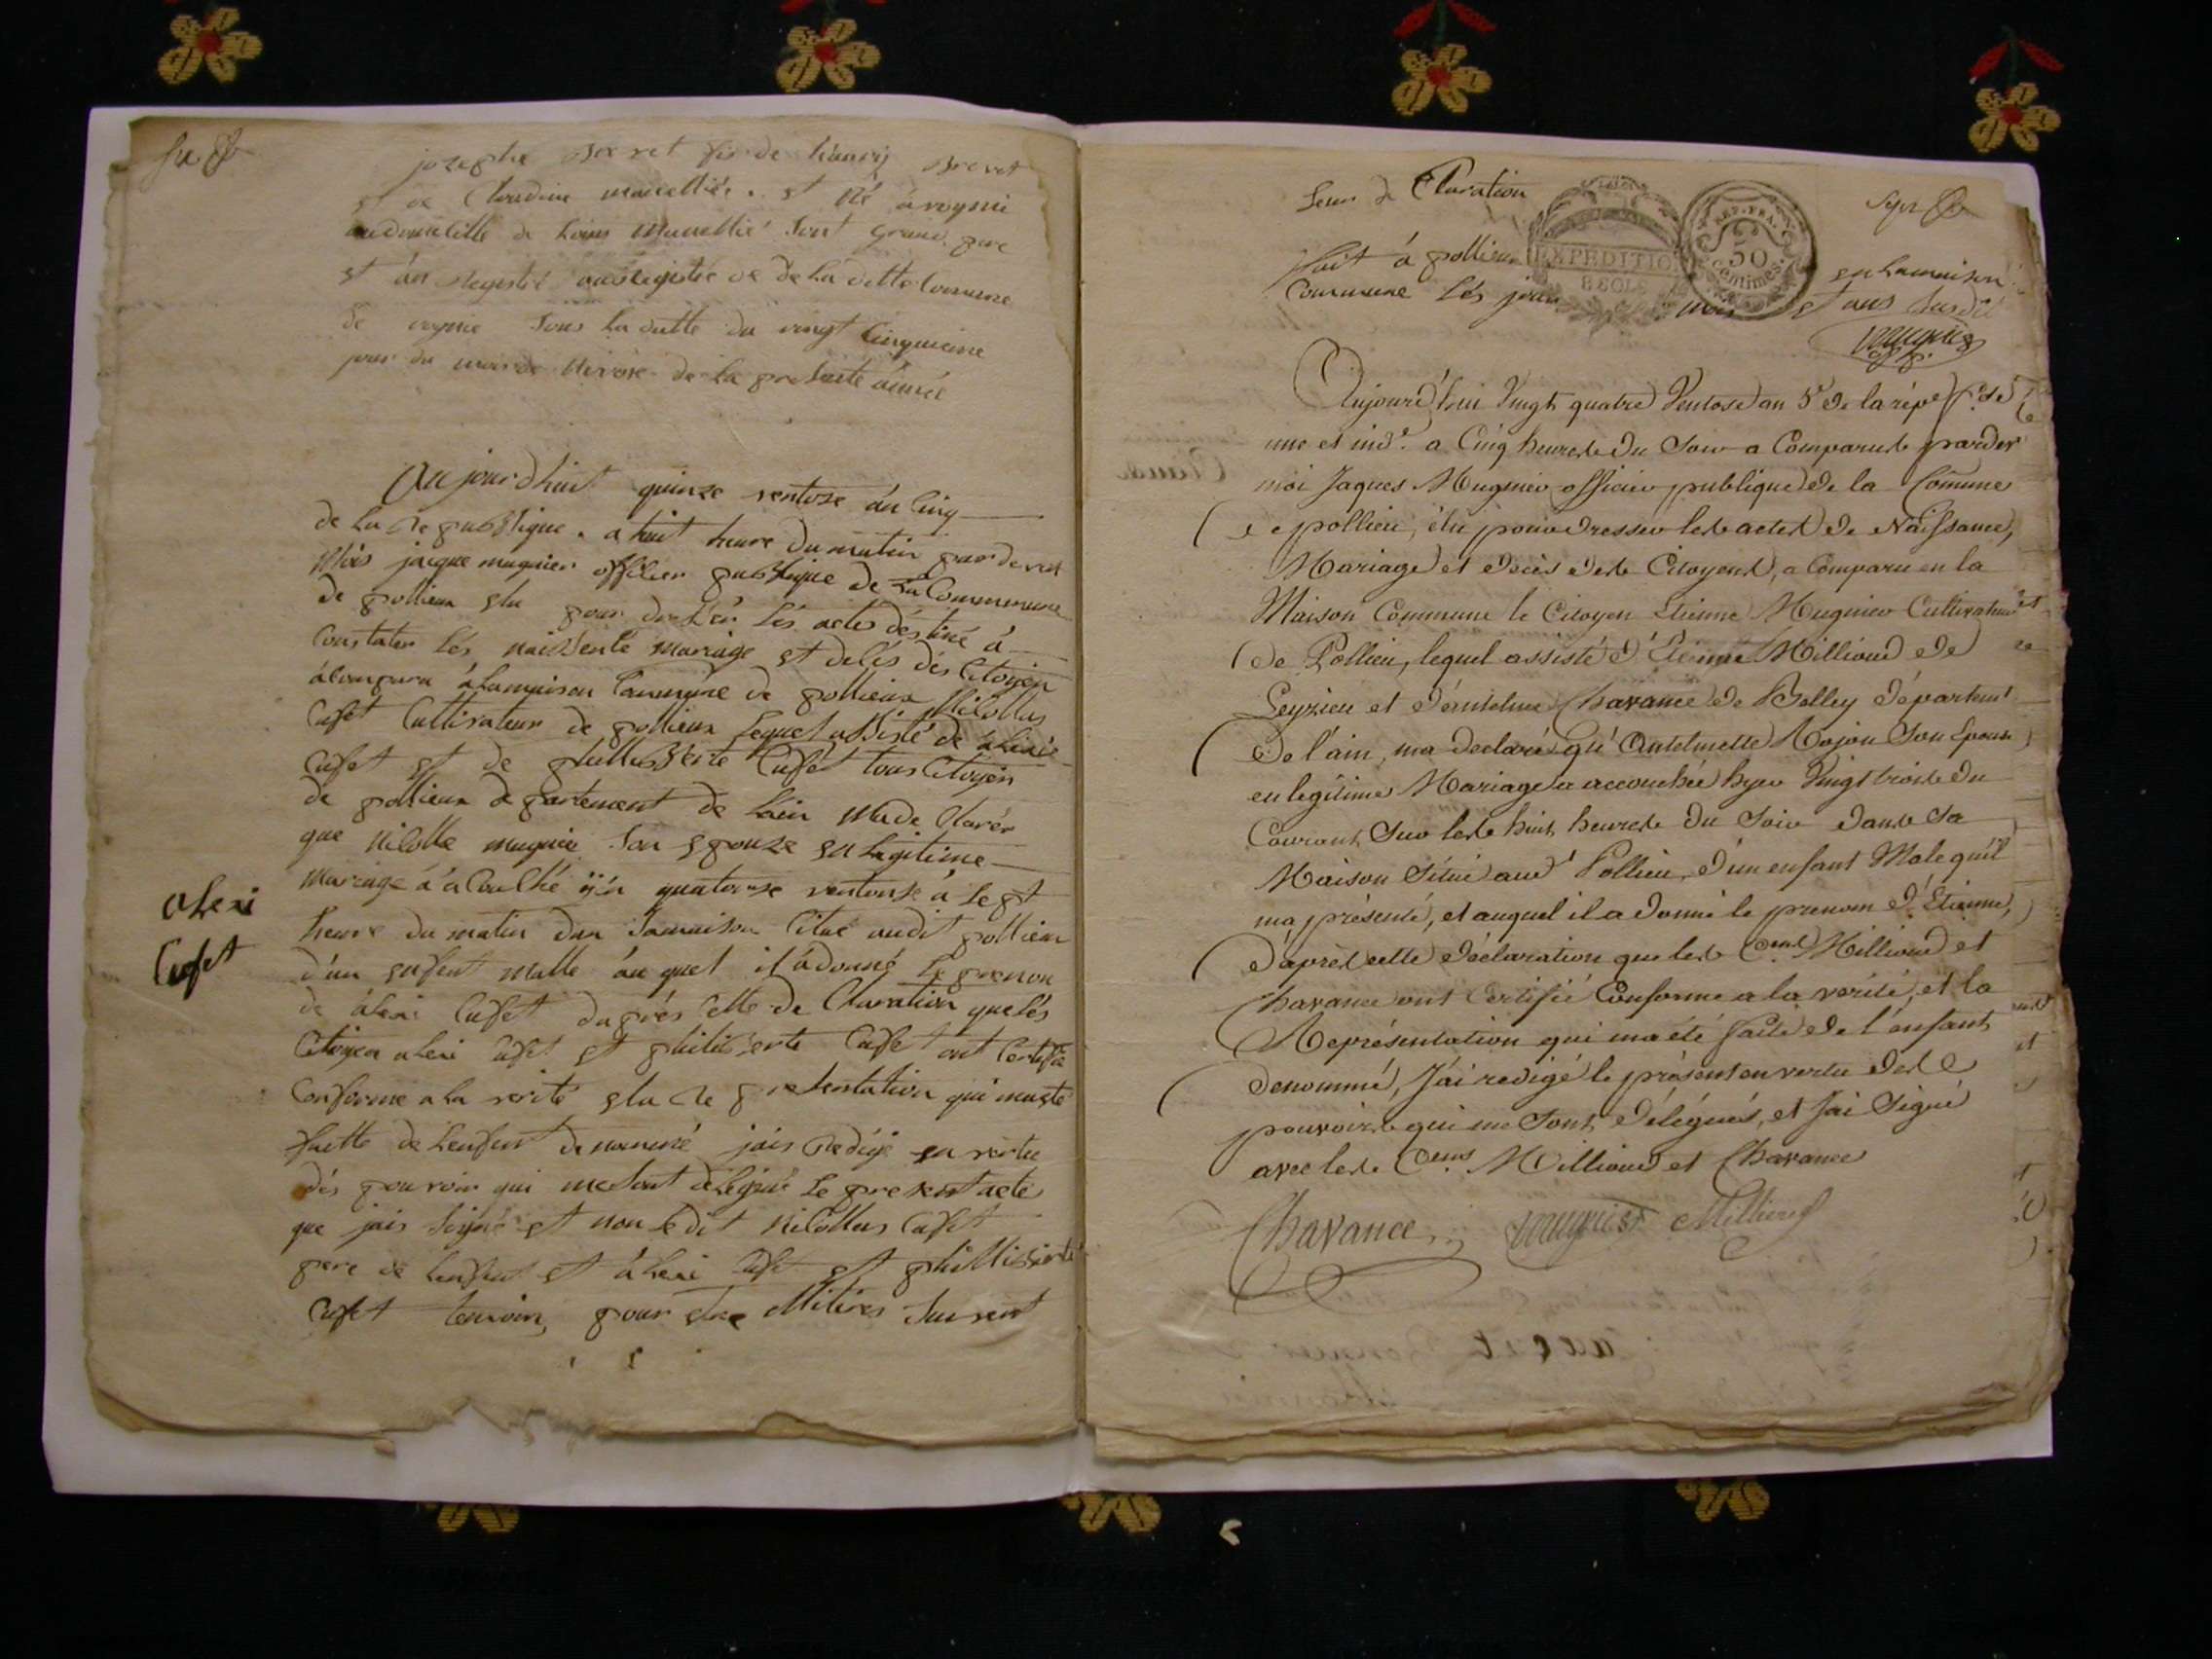 josephe Brevet fis de hanrÿ Brevet
et de Claudine mauellié. et né a vognie
audomicille de Louis Mauellié sont grand pere
et án registré auxregistre de de la ditte Comune
de vognie sous la datte du vingt Cinquieme
jour du mois de Nivose de la presente ánnée
Au jourdhuit quinze ventose án Cinq
de la republique. a huit heure du matin pardevent
Mois jacque mugnier offilier publique de La Commune
de pollieux elu pour dresser les actes destiné à
Constater lés naissente mariage et delés dés Citoyen
álompara álamaison Commune de pollieux Nicollas
Cufet Cultivateur de pollieux lequel assisté de álexie
Cufet et de philliberte Cufet tous Citoyen
de pollieux departement de Lain made Clarér
que Nicolle mugnié Son epouze en Legitime
mariage á alouché ÿér quatorze ventouse á sept
heure du matin dan samaison Citue audit pollieu
aLexi
Cufet
d'un enfent malle áu quel il ádonné Le prenon
de álexi Cufet daprés Cette de Claration quelés
Citoyen alexi Cufet et philiberte Cufet ont Certifié
Conforme ala verité ela re presentation qui maeté
faitte de Lenfent denommé jais redigé en vertu
dés pouvoir qui mesont delegué Le present acte
que jais signé et non Ledit Nicollas Cufet
pere de Lenfent et áLexi Cufet et philliberte
Cufet temoin, pour etre illitéres Suivent
Leur de Claration
Sept
EXPEDITION
REP. FRA.
50
Centimes
fait á pollieux en Lamaison
Commune Lés jour mois et ans susdit
mugnier
Aujourd'hui Vingt quatre Ventose an 5e de la répe f.se
une et ind.e a Cinq heures du Soir a Comparu parder
moi Jaques Mugnier officier publique de la Comune
de pollieu, élu pour dresser les actes de Naissance,
Mariage et décès des Citoyens, a Comparu en la
Maison Commune le Citoyen Etienne Mugnier Cultivateur
de Pollieu, lequel assisté d'Etienne Milliond de
Peyzieu et d'antelme Chavance de Belley département
de l'ain, ma declaré qu'Antelmette Mojon Son Epouse
en legitime Mariage a accouchée hyer Vingt trois du
Courant Sur les huit heures du Soir dans Sa
Maison Située aud.t Pollieu, d'un enfant Male qu'il
ma présenté, et auquel il a donné le prenom d'Etienne,
d'après cette déclaration que les C.ens Milliond et
Chavance ont Certifié Conforme a la verité, et la
Représentation qui ma été faite de l'enfant
denommé, J'ai redigé le présent en vertu des
pouvoirs qui me Sont délégués, et J'ai Signé
avec les C.ens Milliond et Chavance
Chavance mugnier Milliond